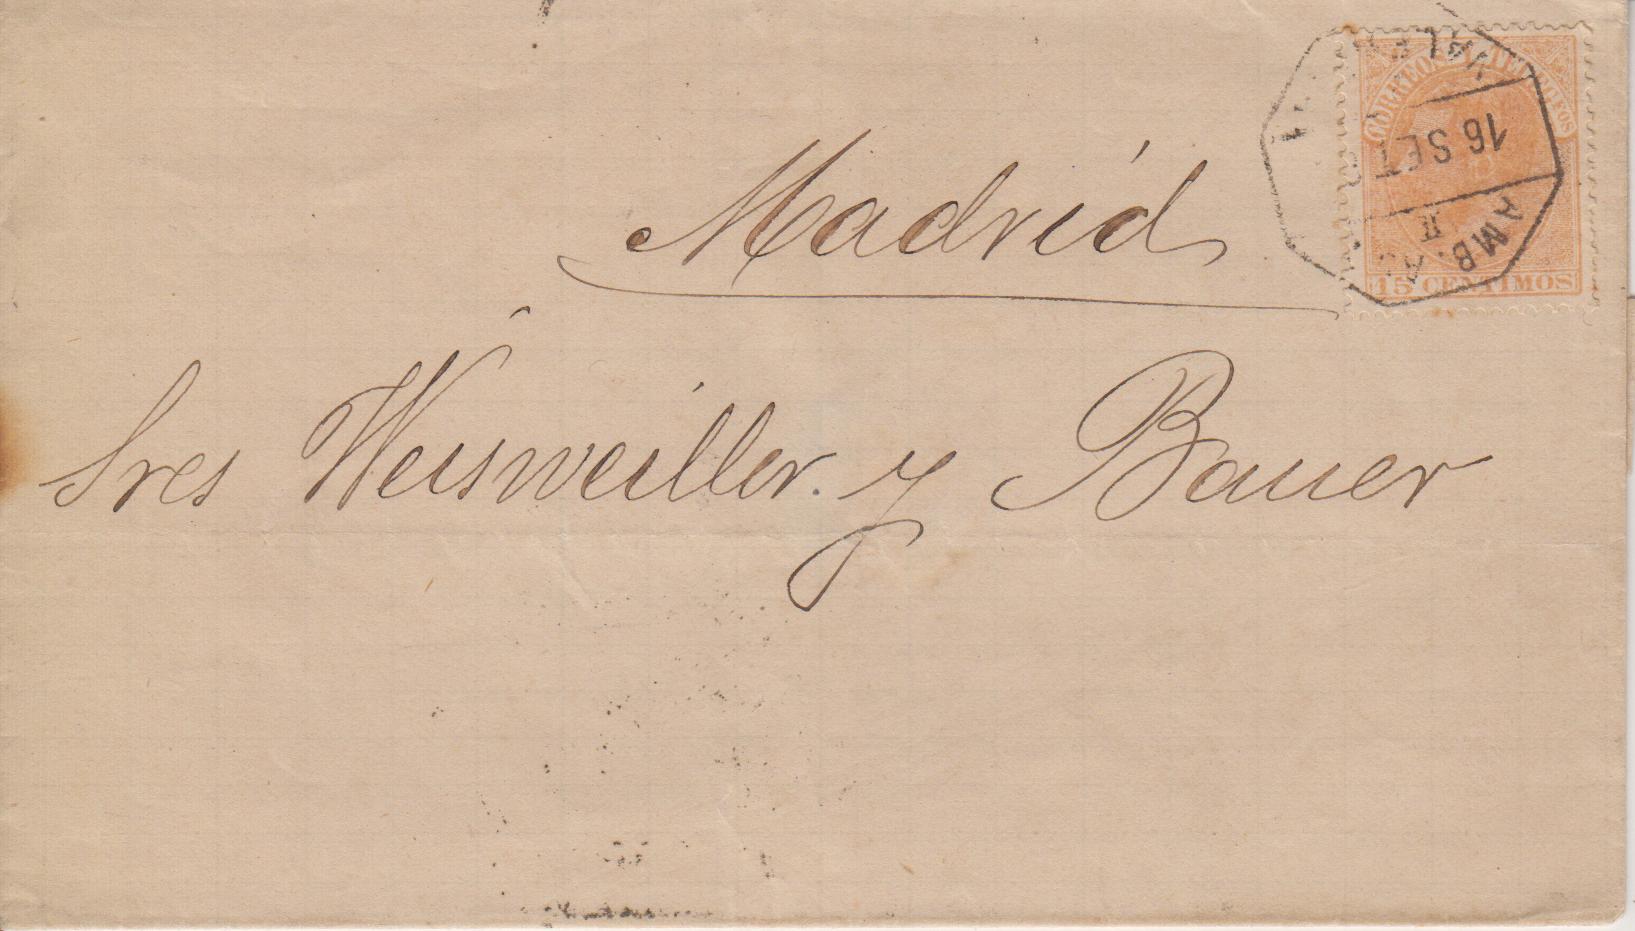 Madrid
Sres Weisweiller y Bauer
CORREOS Y TELEGRAFOS
15 CENTIMOS
16 SET
AMB.
II